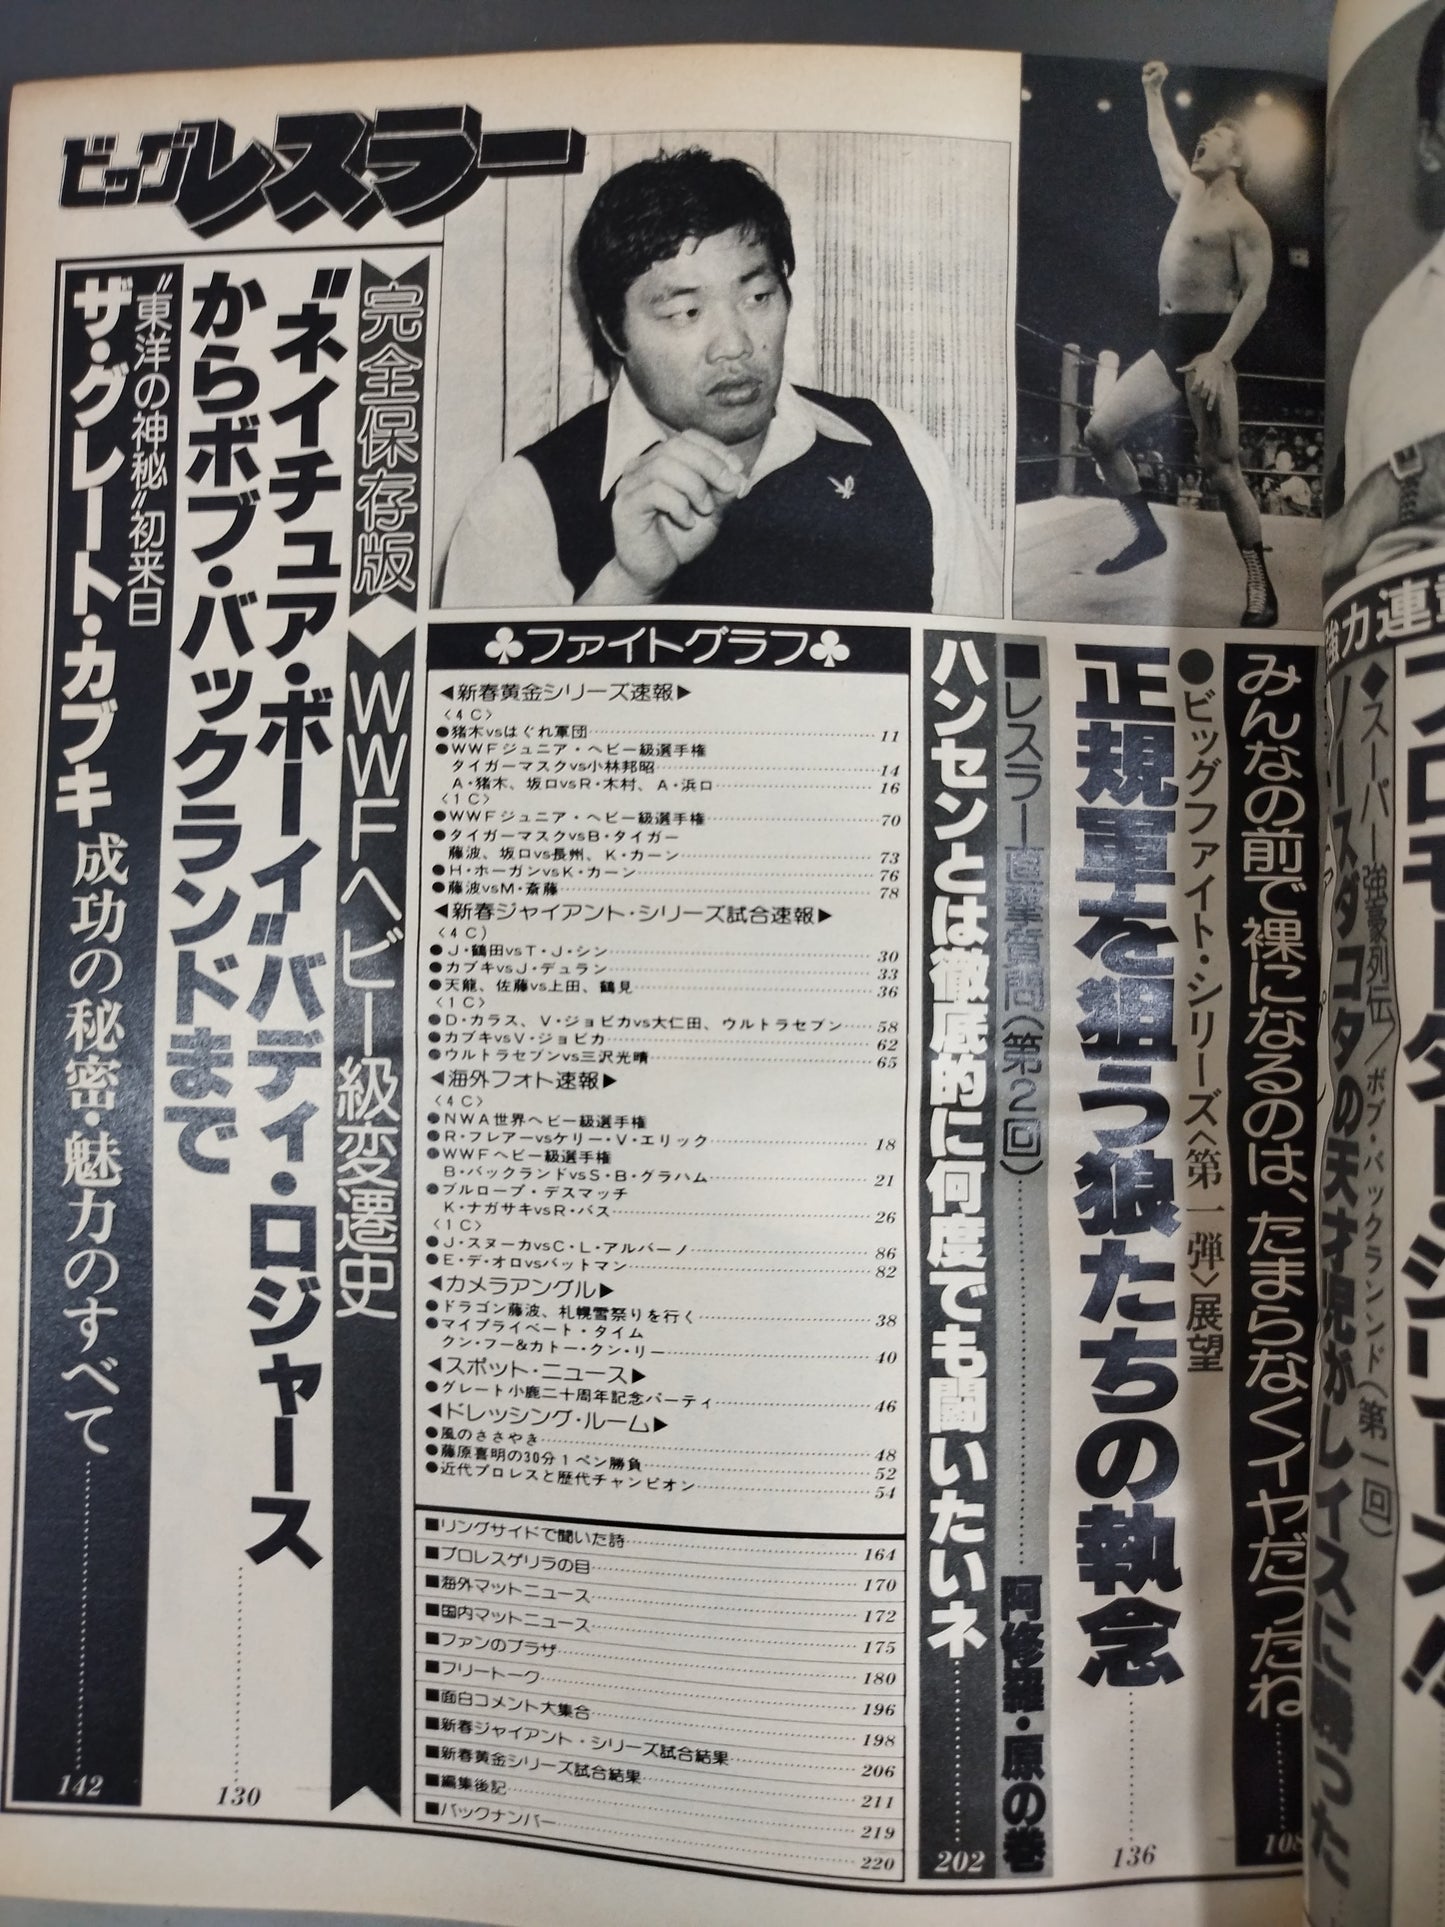 ビッグレスラー
強力連
◆スーパー強豪列伝／ボブ・バックランド(第一回)
ノースダコタの天才児がレイスに勝った
みんなの前で裸になるのは、たまらなくイヤだったね
108
●ビッグファイト・シリーズ〈第一弾〉展望
正規軍を狙う狼たちの執念
136
■レスラー直撃質問(第2回)
阿修羅・原の巻
ハンセンとは徹底的に何度でも闘いたいネ
202
♣ファイトグラフ♣
◀新春黄金シリーズ速報▶
〈4C〉
●猪木vsはぐれ軍団 11
●WWFジュニア・ヘビー級選手権
タイガーマスクvs小林邦昭 14
A・猪木、坂口vsR・木村、A・浜口 16
〈1C〉
●WWFジュニア・ヘビー級選手権 70
●タイガーマスクvsB・タイガー
藤波、坂口vs長州、K・カーン 73
●H・ホーガンvsK・カーン 76
●藤波vsM・斎藤 78
◀新春ジャイアント・シリーズ試合速報▶
〈4C〉
●J・鶴田vsT・J・シン 30
●カブキvsJ・デュラン 33
●天龍、佐藤vs上田、鶴見 36
〈1C〉
●D・カラス、V・ジョビカvs大仁田、ウルトラセブン 58
●カブキvsV・ジョビカ 62
●ウルトラセブンvs三沢光晴 65
◀海外フォト速報▶
〈4C〉
●NWA世界ヘビー級選手権
●R・フレアーvsケリー・V・エリック 18
●WWFヘビー級選手権
B・バックランドvsS・B・グラハム 21
●ブルロープ・デスマッチ
K・ナガサキvsR・バス 26
〈1C〉
●J・スヌーカvsC・L・アルバーノ 86
●E・デ・オロvsバットマン 82
◀カメラアングル▶
●ドラゴン藤波、札幌雪祭りを行く 38
●マイプライベート・タイム
クン・フー&カトー・クン・リー 40
◀スポット・ニュース▶
●グレート小鹿二十周年記念パーティ 46
◀ドレッシング・ルーム▶
●風のささやき 48
●藤原喜明の30分1ペン勝負 52
●近代プロレスと歴代チャンピオン 54
■リングサイドで聞いた詩 164
■プロレスゲリラの目 170
■海外マットニュース 172
■国内マットニュース 175
■ファンのプラザ 180
■フリートーク 196
■面白コメント大集合 198
■新春ジャイアント・シリーズ試合結果 206
■新春黄金シリーズ試合結果 211
■編集後記 219
■バックナンバー 220
完全保存版
WWFヘビー級変遷史
〝ネイチュア・ボーイ〟バディ・ロジャース
からボブ・バックランドまで
130
〝東洋の神秘〟初来日
ザ・グレート・カブキ成功の秘密・魅力のすべて
142